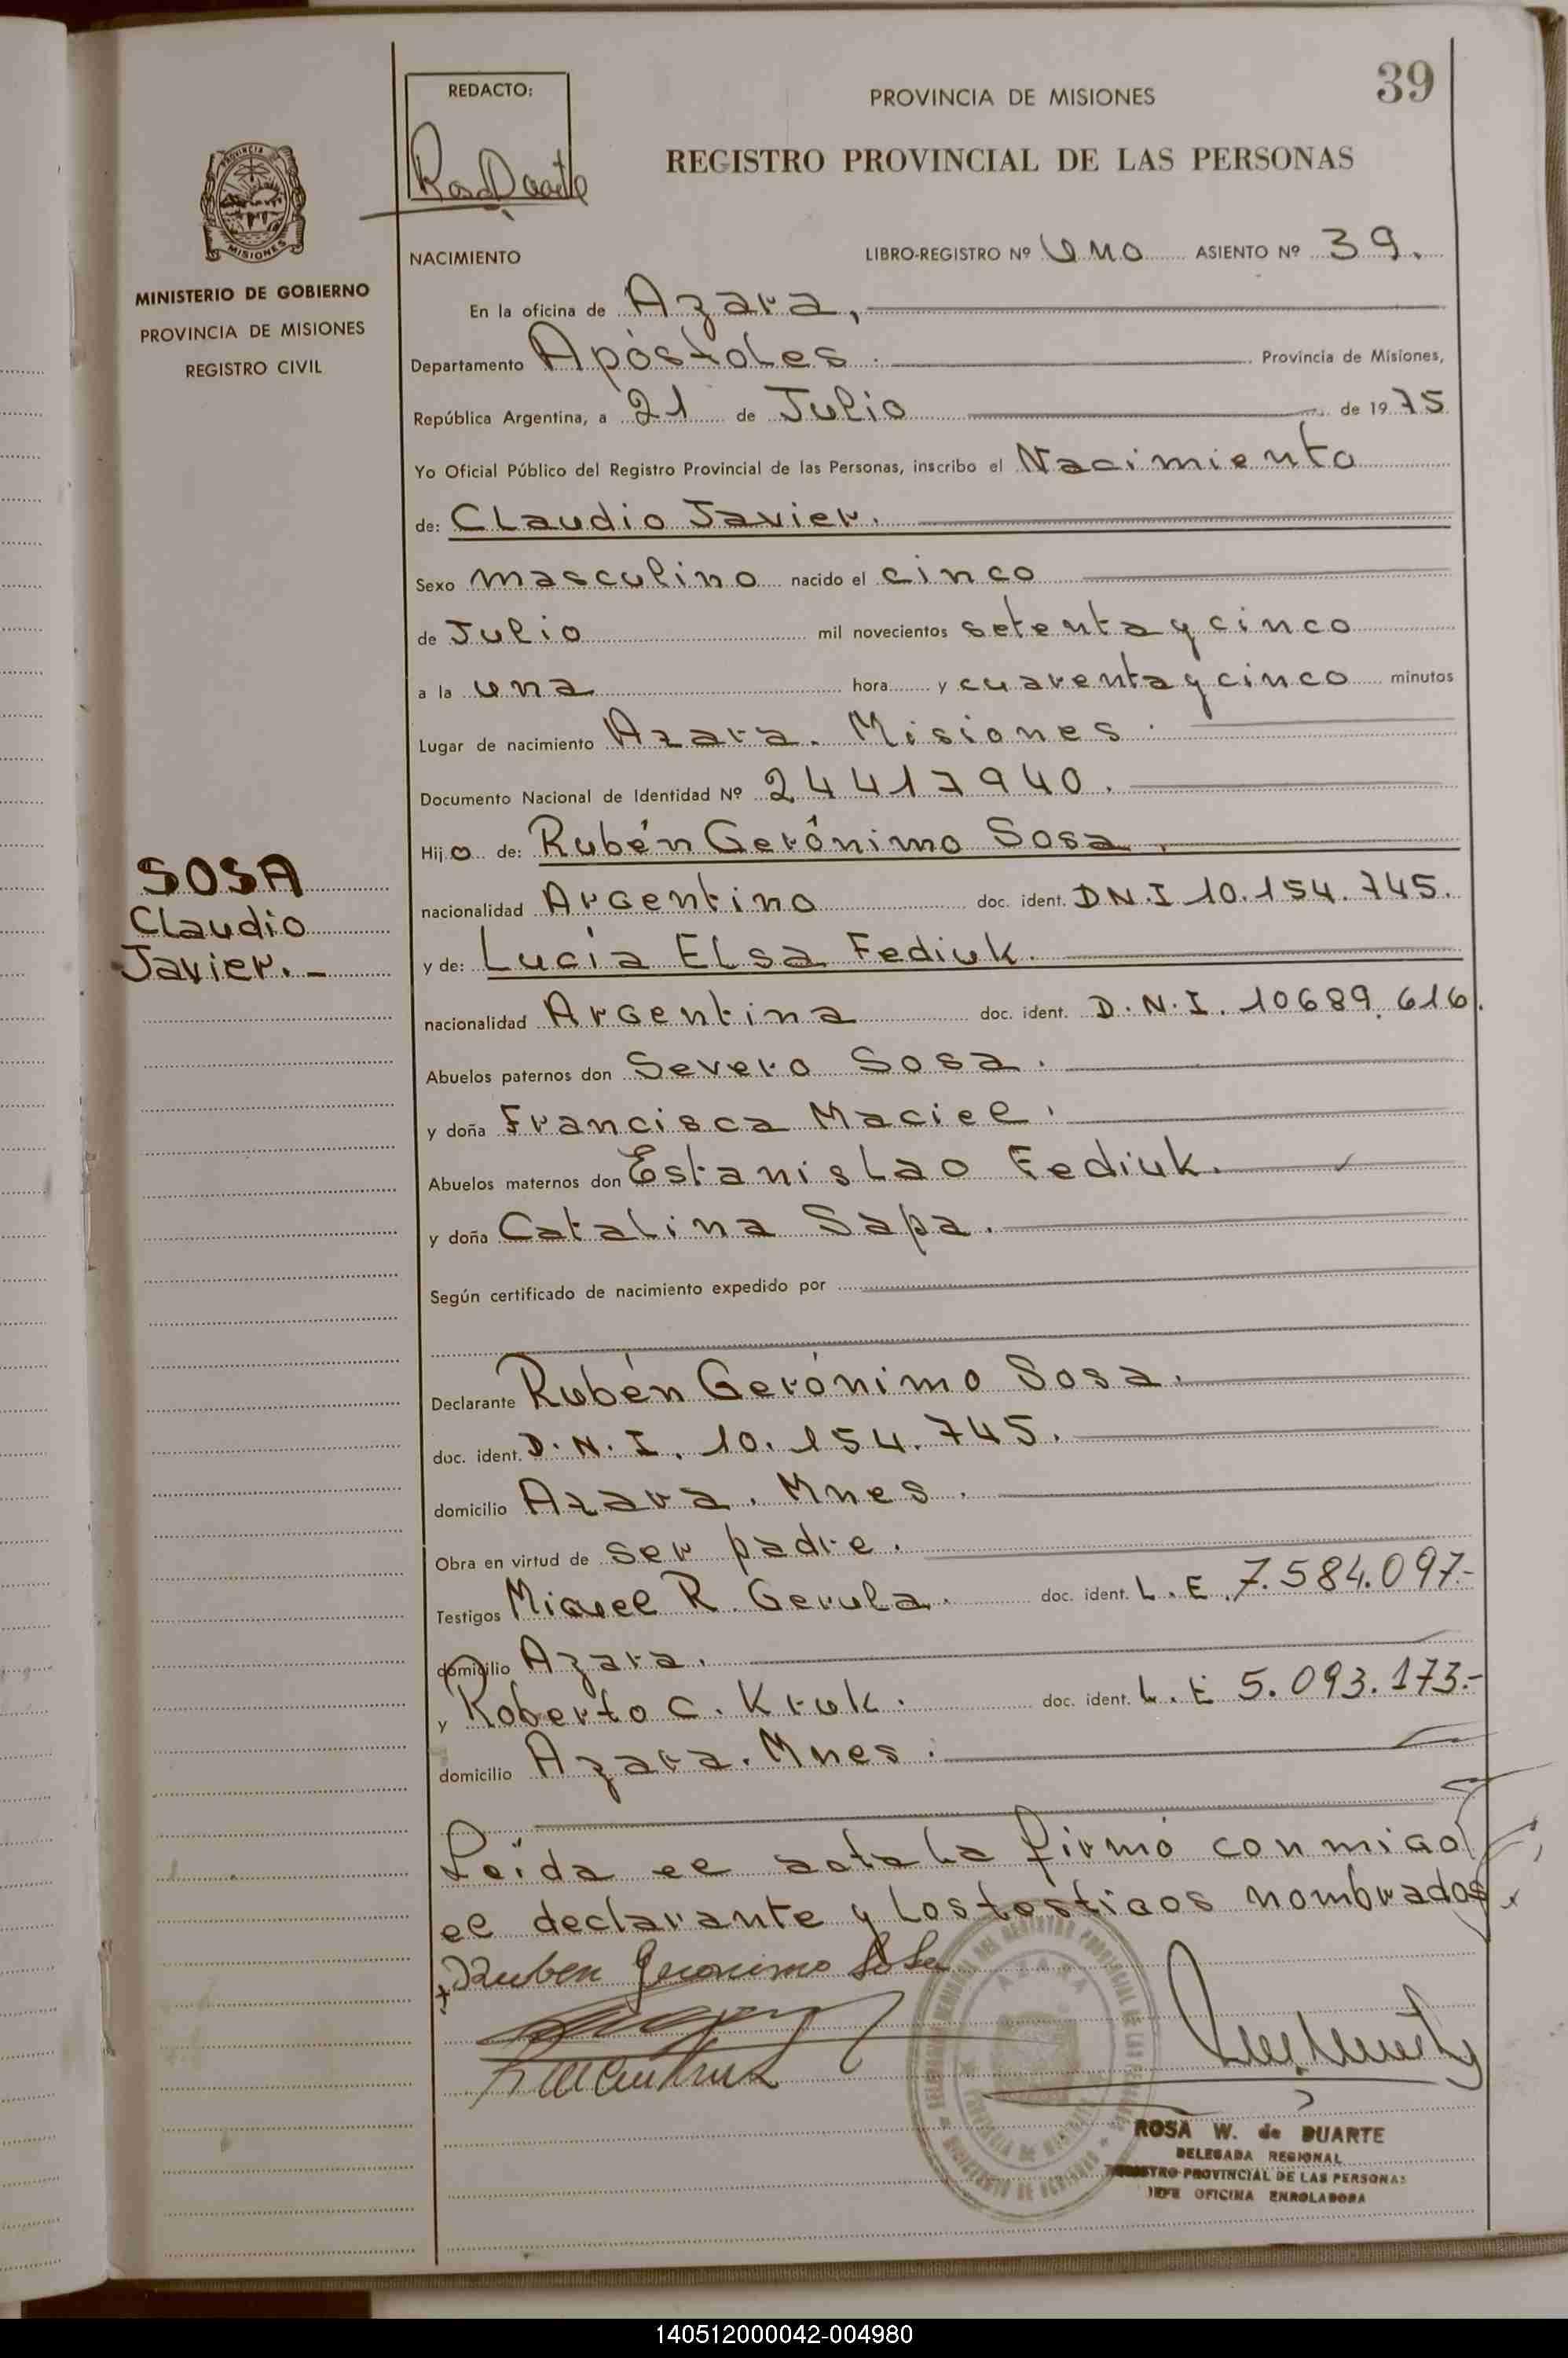 39
REDACTO:
Rosa Duarte
PROVINCIA DE MISIONES
REGISTRO PROVINCIAL DE LAS PERSONAS
PROVINCIA
MISIONES
MINISTERIO DE GOBIERNO
PROVINCIA DE MISIONES
REGISTRO CIVIL
NACIMIENTO LIBRO-REGISTRO Nº Uno ASIENTO Nº 39.
En la oficina de Azara,
Departamento Apóstoles. Provincia de Misiones,
República Argentina, a 21 de Julio de 1975
Yo Oficial Público del Registro Provincial de las Personas, inscribo el Nacimiento
de: Claudio Javier.
Sexo masculino nacido el cinco
de Julio mil novecientos setenta y cinco
a la una hora y cuarenta y cinco minutos
Lugar de nacimiento Azara. Misiones.
Documento Nacional de Identidad Nº 24417940.
Hijo de: Rubén Gerónimo Sosa.
nacionalidad Argentino doc. ident. D.N.I 10.154.745.
SOSA
Claudio
Javier.-
y de: Lucía Elsa Fediuk.
nacionalidad Argentina doc. ident. D.N.I. 10689.616.
Abuelos paternos don Severo Sosa.
y doña Francisca Maciel.
Abuelos maternos don Estanislao Fediuk.
y doña Catalina Sapa.
Según certificado de nacimiento expedido por
Declarante Rubén Gerónimo Sosa.
doc. ident. D.N.I. 10.154.745.
domicilio Azara. Mnes.
Obra en virtud de ser padre.
Testigos Miguel R. Gerula. doc. ident. L.E. 7.584.097-
domicilio Azara.
y Roberto C. Kruk. doc. ident. L.E 5.093.173.-
domicilio Azara. Mnes.
Leída el acta la firmó conmigo
el declarante y los testigos nombrados.
Ruben Geronimo Sosa
ROSA W. de DUARTE
DELEGADA REGIONAL
REGISTRO PROVINCIAL DE LAS PERSONAS
JEFE OFICINA ENROLADORA
140512000042-004980